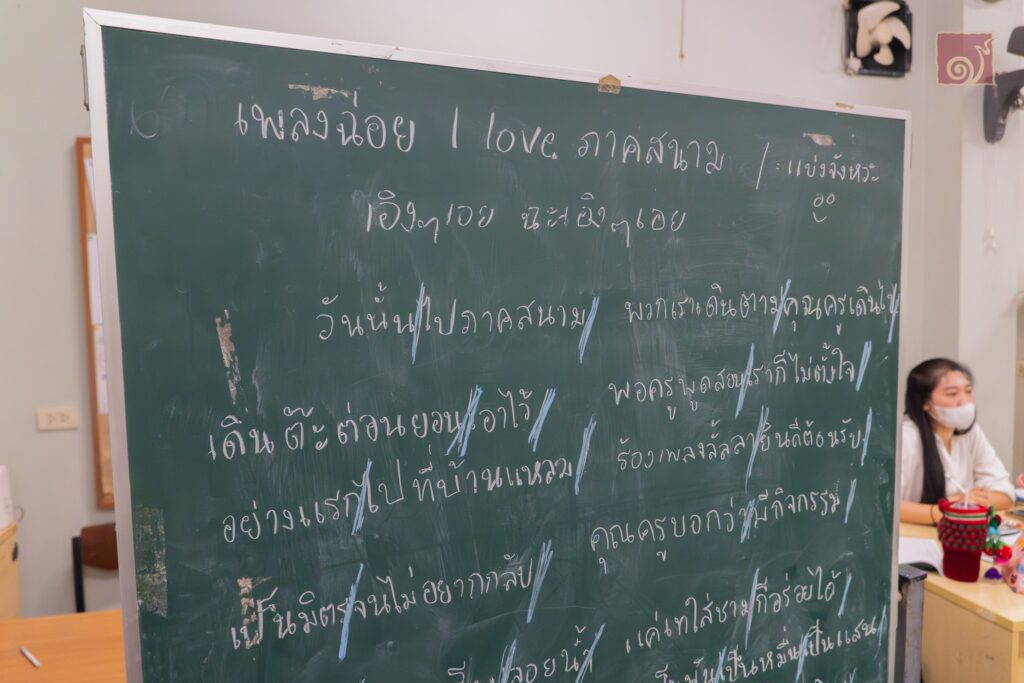 เพลงฉ่อย I love ภาคสนาม / = แบ่งจังหวะ
เอิงๆเอย ฉะเอิงๆเอย
วันนั้น/ไปภาคสนาม/ พวกเราเดินตาม/คุณครูเดินไป/
เดิน ต๊ะต่อนยอน/เอาไว้/ พอครูพูดสอน/เราก็ไม่ตั้งใจ/
อย่างแรก/ไปที่บ้านแหลม/ ร้องเพลงลั้ลลา/ยินดีต้อนรับ/
เป็นมิตร/จนไม่อยากกลับ/ คุณครูบอกว่า/มีกิจกรรม/
ลอยน้ำ/ แค่เทใส่ชาม/ก็อร่อยได้/
เป็นหมื่น/เป็นแสน/